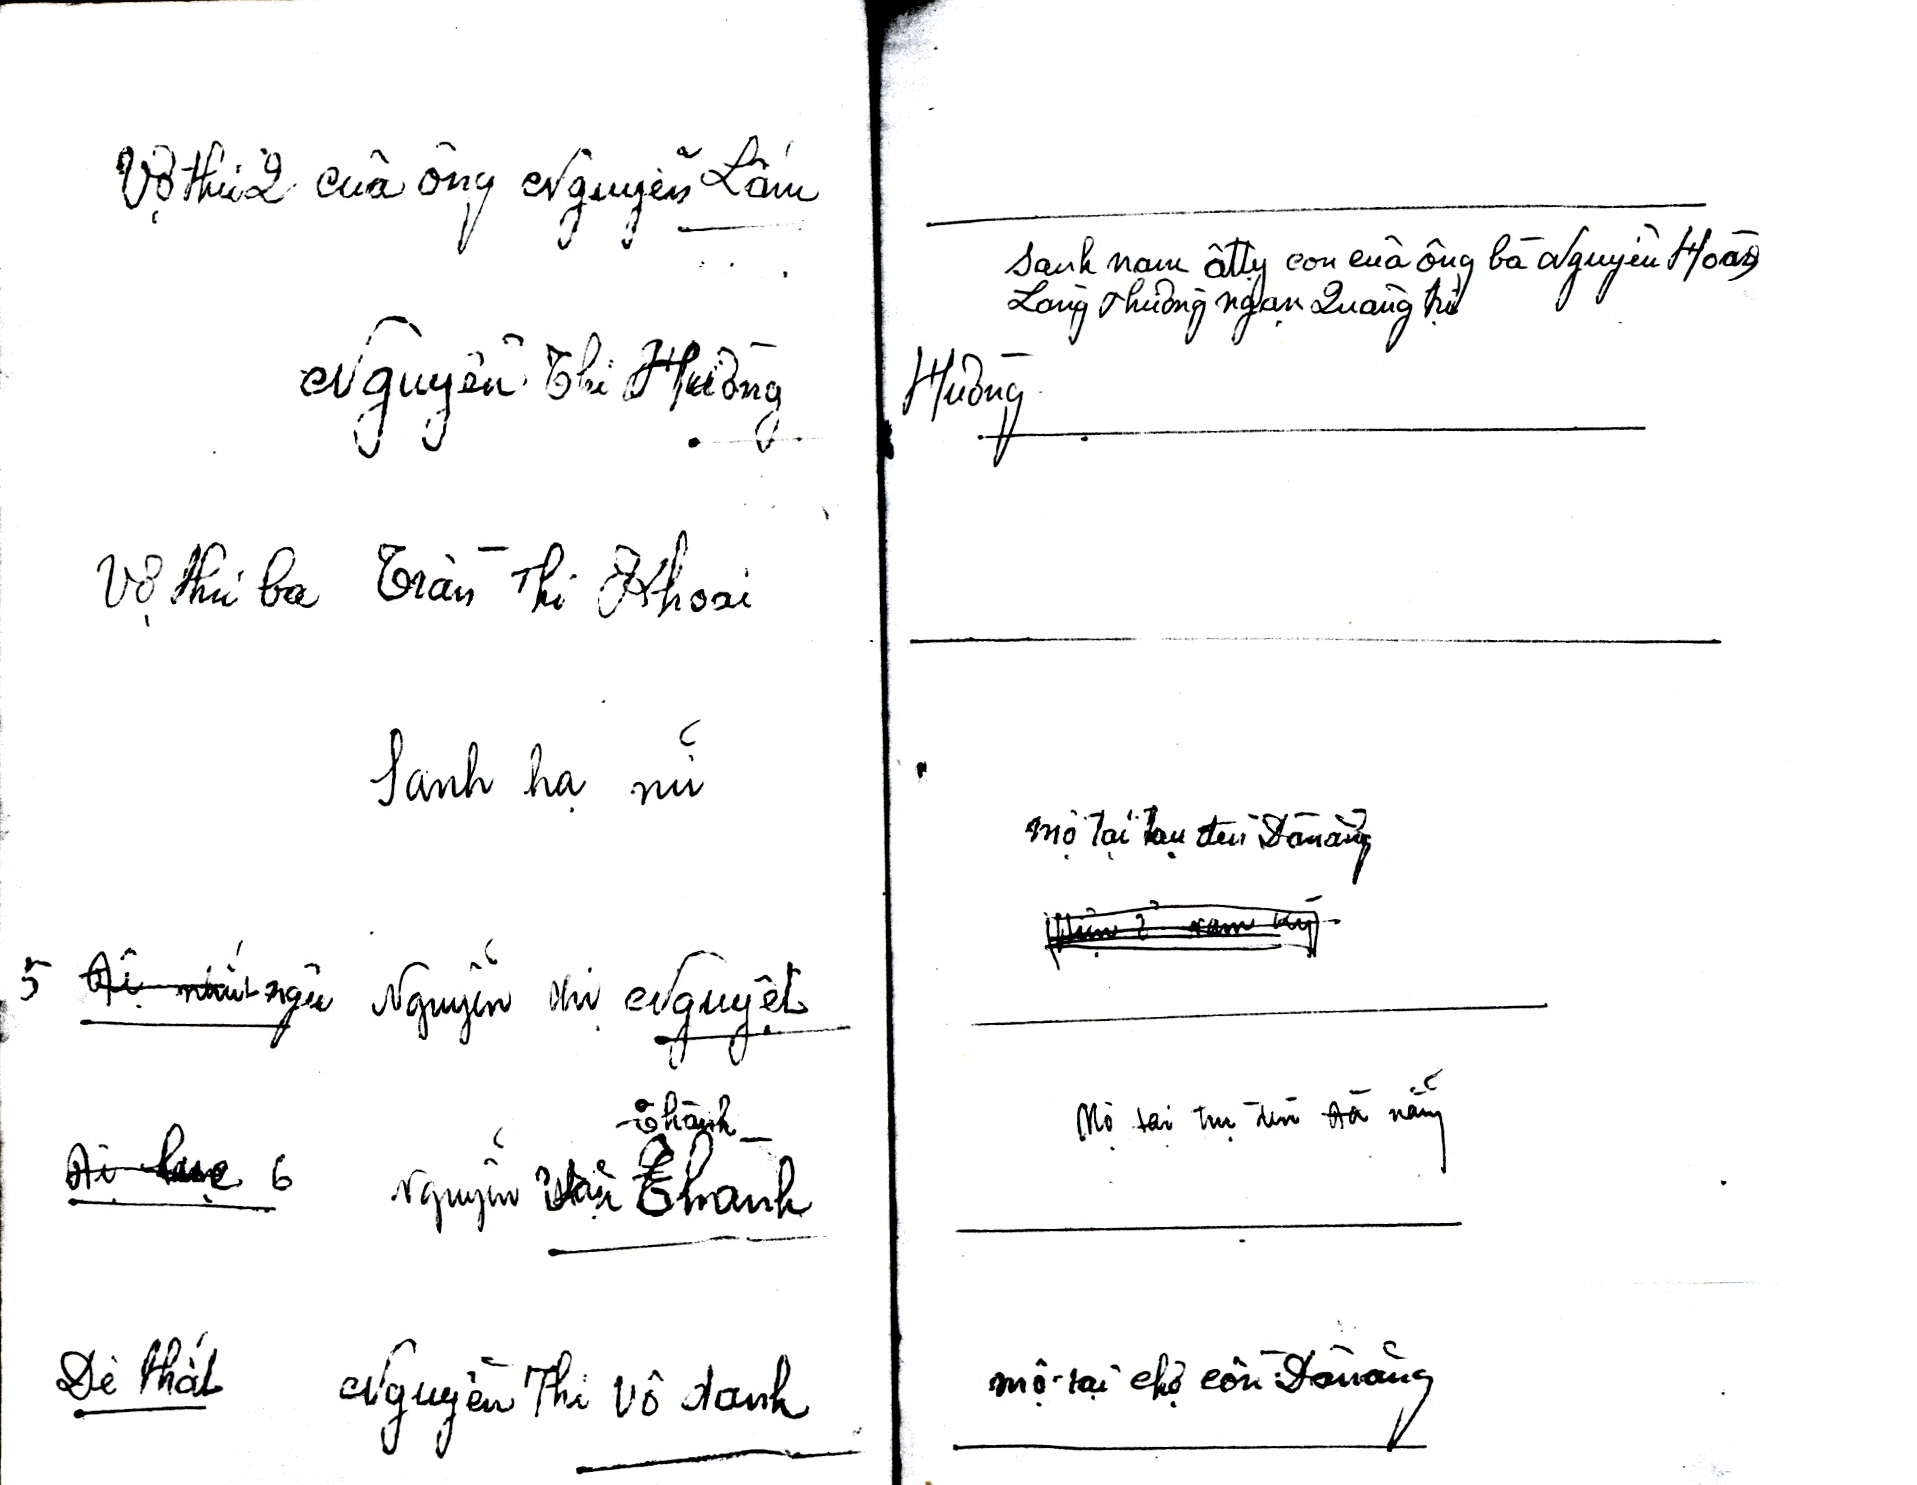 Vợ thứ 2 của ông Nguyễn Lâm
Nguyễn Thi Hường
Vợ thứ ba Trần Thi Khoai
Sanh hạ nứ
5 ngủ Nguyễn thị Nguyệt
Thành
6 Nguyễn Thành
Dè thất Nguyễn Thi Vô danh
Sanh nam ất tỵ con của ông bà Nguyễn Hoàng
Làng Thường ngạn Quảng trị
Hường
mộ tại Đà nẵng
nam kỳ
Mộ tại Đà nẵng
mộ tại chợ cồn Đà nẵng